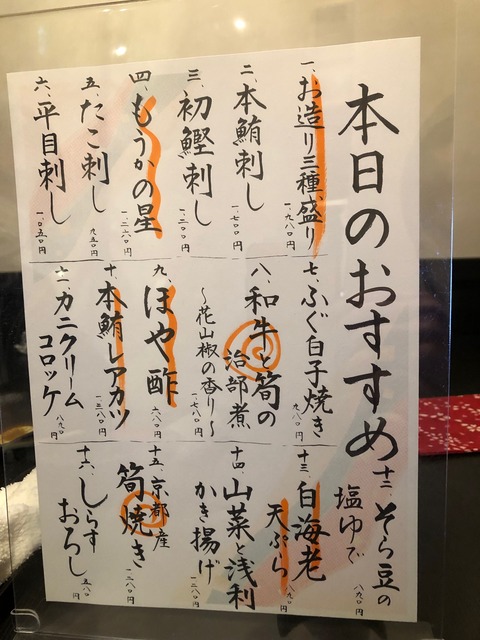 本日のおすすめ
一、お造り三種盛り 一、九八〇円
二、本鮪刺し 一、七〇〇円
三、初鰹刺し 一、二〇〇円
四、もうかの星 一、二六〇円
五、たこ刺し 九五〇円
六、平目刺し 一、〇五〇円
七、ふぐ白子焼き 九八〇円
八、和牛と筍の
治部煮
〜花山椒の香り〜 一、七八〇円
九、ほや酢 六八〇円
十、本鮪レアカツ 一、三八〇円
十一、カニクリーム
コロッケ 八九〇円
十二、そら豆の
塩ゆで 八九〇円
十三、白海老
天ぷら
十四、山菜と浅利
かき揚げ 一、二八〇円
十五、京都産
筍焼き 一、二八〇円
十六、しらす
おろし 五八〇円